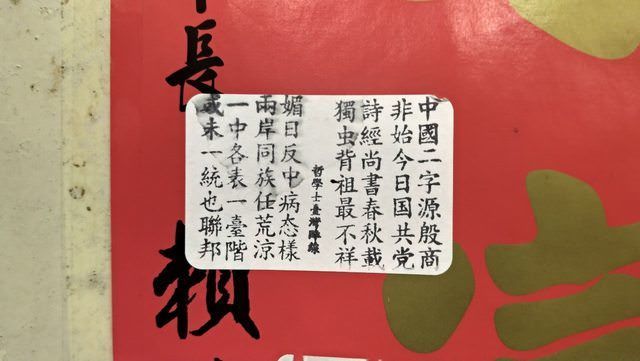 中國二字源殷商
非始今日国共党
詩經尚書春秋載
獨虫背祖最不祥
哲學士臺灣陣線
媚日反中病态樣
兩岸同族任荒涼
一中各表一臺階
或未一統也聯邦
長
賴